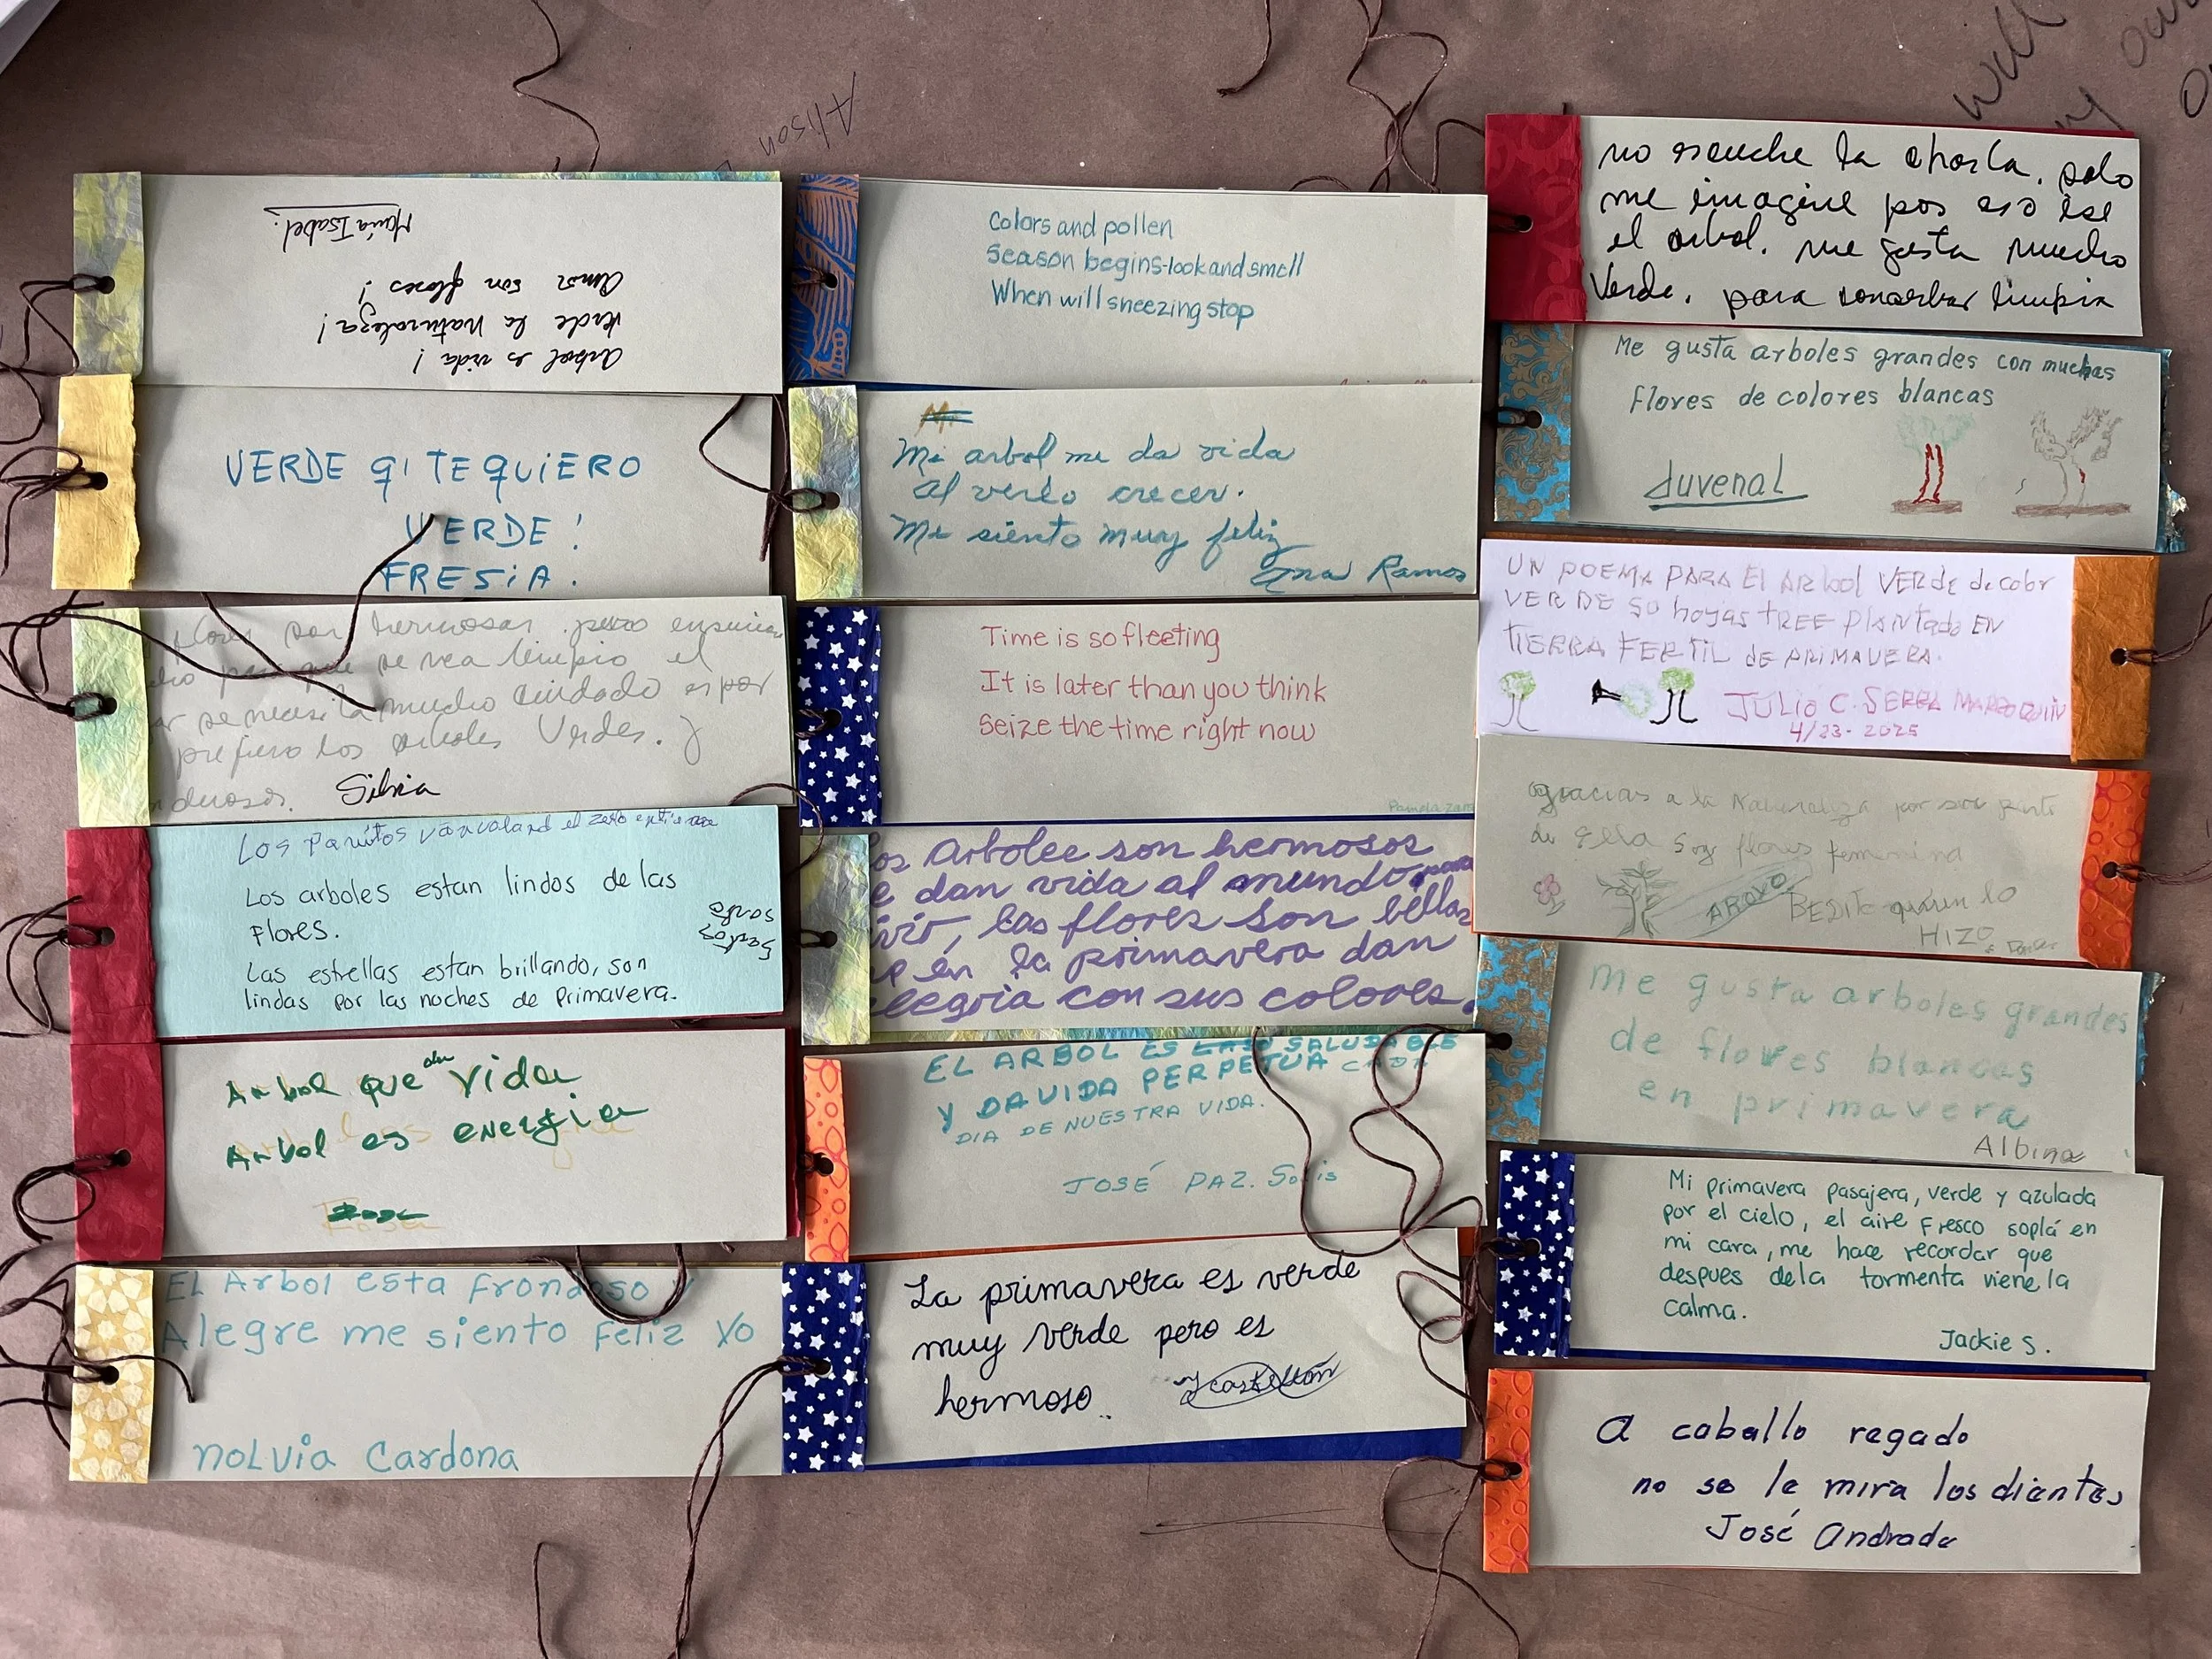 Alison
will
Arbol es vida!
Verde la Naturaleza!
Amor son flores!
María Isabel.
VERDE q' TE QUIERO
VERDE!
FRESIA.
flores son hermosas pero ensucian
para que se vea limpio el
se necesita mucho cuidado es por
prefiero los arboles Verdes. y
Silvia
Los arboles estan lindos de las
flores.
Las estrellas estan brillando, son
lindas por las noches de primavera.
Arbol que da vida
Arbol es energia
EL Arbol esta frondoso y
Alegre me siento feliz yo
NOLVIA Cardona
Colors and pollen
Season begins-look and smell
When will sneezing stop
Mi arbol me da vida
al verlo crecer.
Me siento muy feliz
Ana Ramos
Time is so fleeting
It is later than you think
Seize the time right now
Pamela
os Arbolee son hermosos
e dan vida al mundo para
ivir, las flores son bellas
en la primavera dan
alegria con sus colores.
EL ARBOL ES SALUDABLE
Y DA VIDA PERPETUA CADA
DIA DE NUESTRA VIDA.
JOSÉ PAZ. Solis
La primavera es verde
muy verde pero es
hermoso.
no escuche la charla, solo
me imagine pos eso ise
el arbol. me gusta mucho
Verde. para limpia
Me gusta arboles grandes con muchas
flores de colores blancas
Juvenal
UN POEMA PARA El ARbol VERDE de color
VERDE SU hoyas TREE PLANTADO EN
TIERRA FERTIL de PRIMAVERA.
JULIO C. SERRA MARROQUIN
4/23-2025
gracias a la Naturaleza por ser parte
de ella Soy flores femenina
ARОYO
HIZO
Me gusta arboles grandes
de flores blancas
en primavera
Albina
Mi primavera pasajera, verde y azulada
por el cielo, el aire fresco soplá en
mi cara, me hace recordar que
despues de la tormenta viene la
calma.
Jackie S.
A caballo regado
no se le mira los dientes
José Andrade